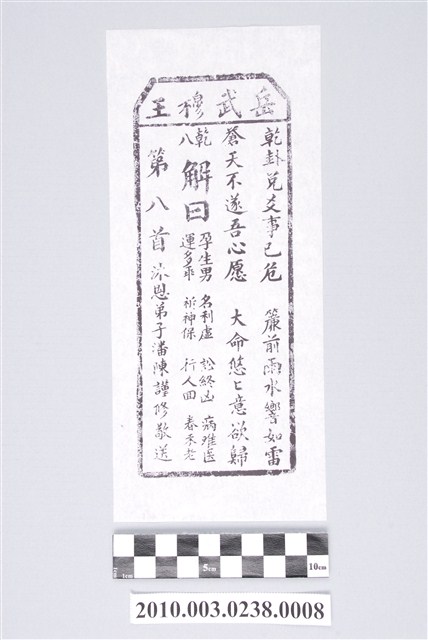 岳武穆王
乾卦兌爻事已危 簷前雨水響如雷
蒼天不遂吾心愿 大命悠匕意欲歸
乾八
解曰
孕生男 名利虛 訟終凶 病难医
運多乖 祈神保 行人回 春禾老
第八首 沐恩弟子潘陳謹修敬送
1cm
5cm
10cm
2010.003.0238.0008